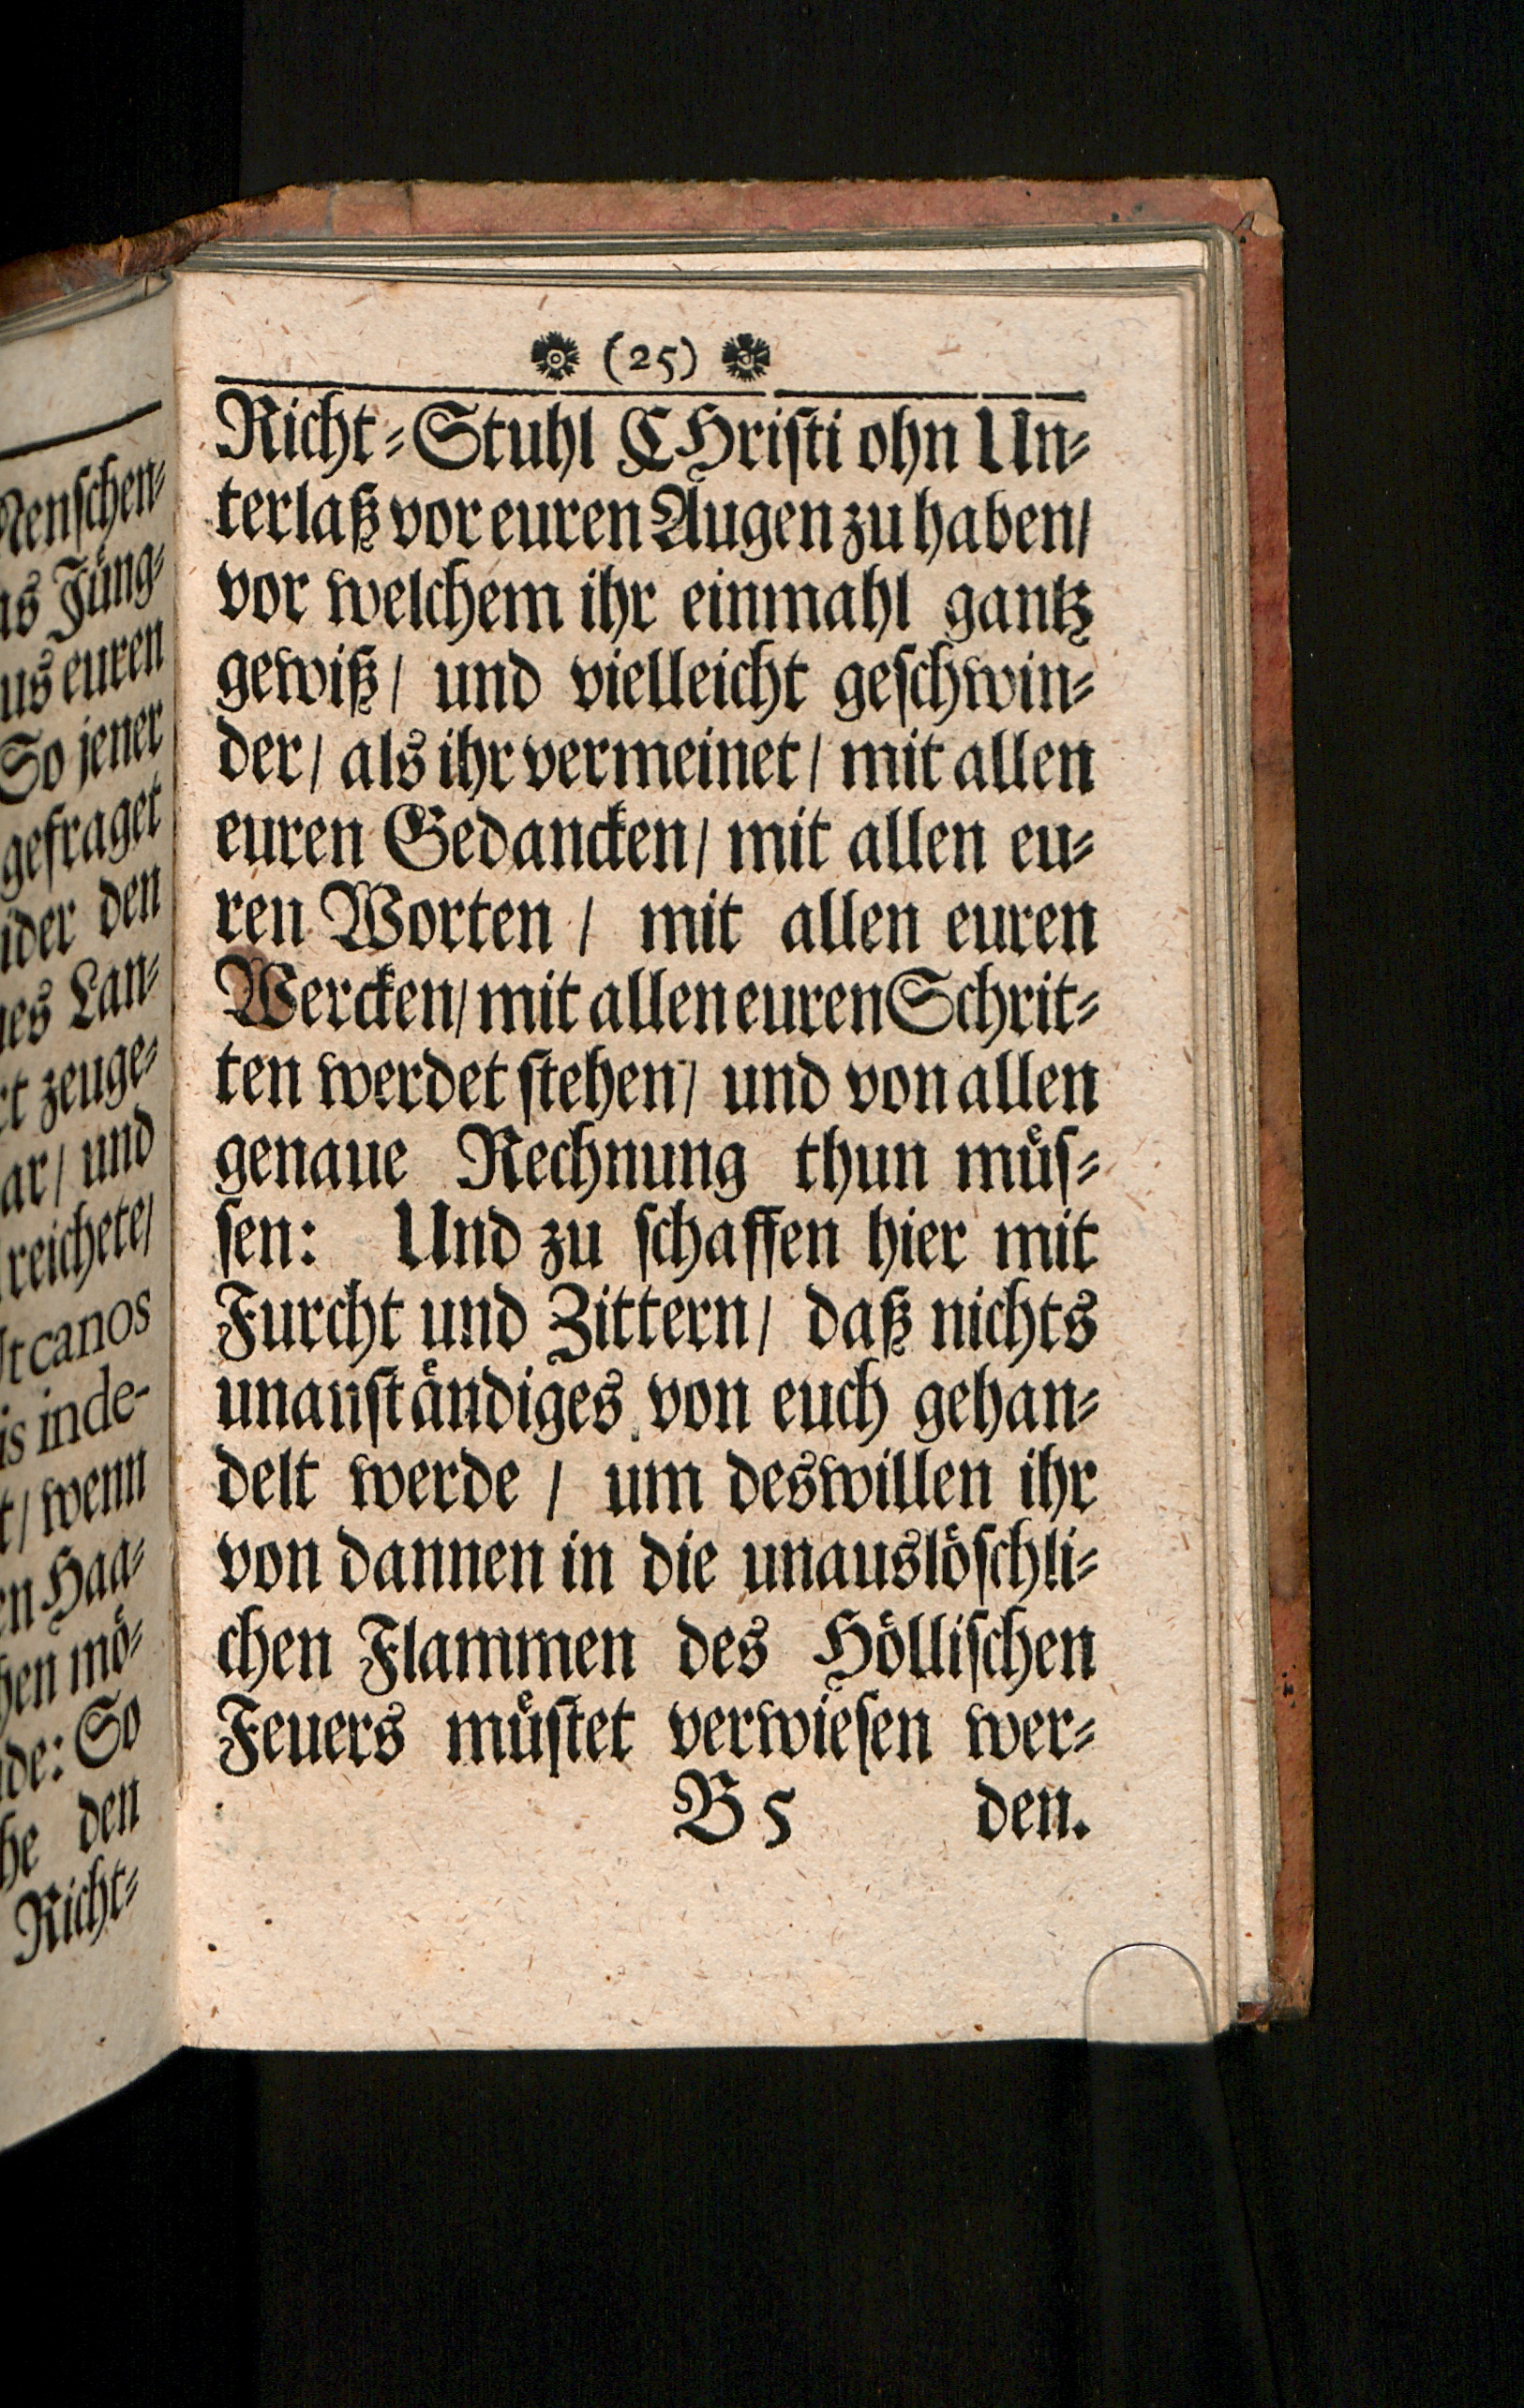 Menschen⸗
Jüng⸗
us euren
So jener
gefraget
den
Lan⸗
zeuge⸗
und
reichete/
canos
is inde-
wenn
Haa⸗
mö⸗
So
den
Richt⸗
(25)
Richt⸗Stuhl CHriſti ohn Un⸗
terlaß vor euren Augen zu haben/
vor welchem ihr einmahl gantz
gewiß/ und vielleicht geſchwin⸗
der/ als ihr vermeinet/ mit allen
euren Gedancken/ mit allen eu⸗
ren Worten / mit allen euren
Wercken/ mit allen euren Schrit⸗
ten werdet ſtehen/ und von allen
genaue Rechnung thun muͤſ⸗
ſen: Und zu ſchaffen hier mit
Furcht und Zittern/ daß nichts
unanſtaͤndiges von euch gehan⸗
delt werde / um deswillen ihr
von dannen in die unausloͤſchli⸗
chen Flammen des Hoͤlliſchen
Feuers muͤſtet verwieſen wer⸗
B5 den.